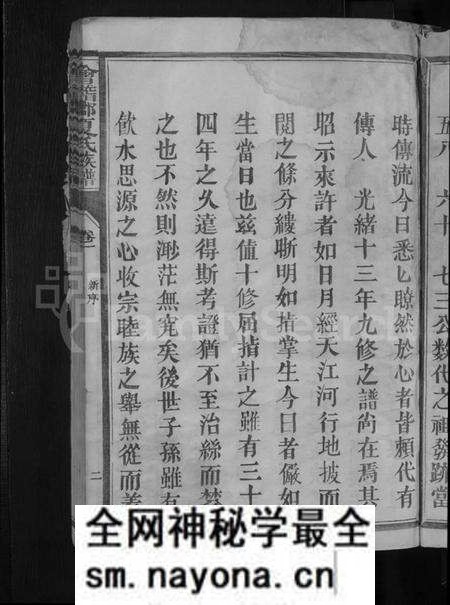 五八 六十 七三公数代之祖發蹟當
時傳流今日悉已瞭然於心者皆賴代有
傳人 光緒十三年九修之譜尚在焉其
昭示來許者如日月經天江河行地披而
閱之條分縷晰明如指掌生今日者儼如
生當日也兹值十修屈指計之雖有三十
四年之久遠得斯考證猶不至治絲而棼
之也不然則渺茫無究矣後世子孫雖有
飲水思源之心收宗睦族之舉無從而
會稽郡夏氏族譜
卷一
新序
二
FamilySearch
全网神秘学最全
sm.nayona.cn